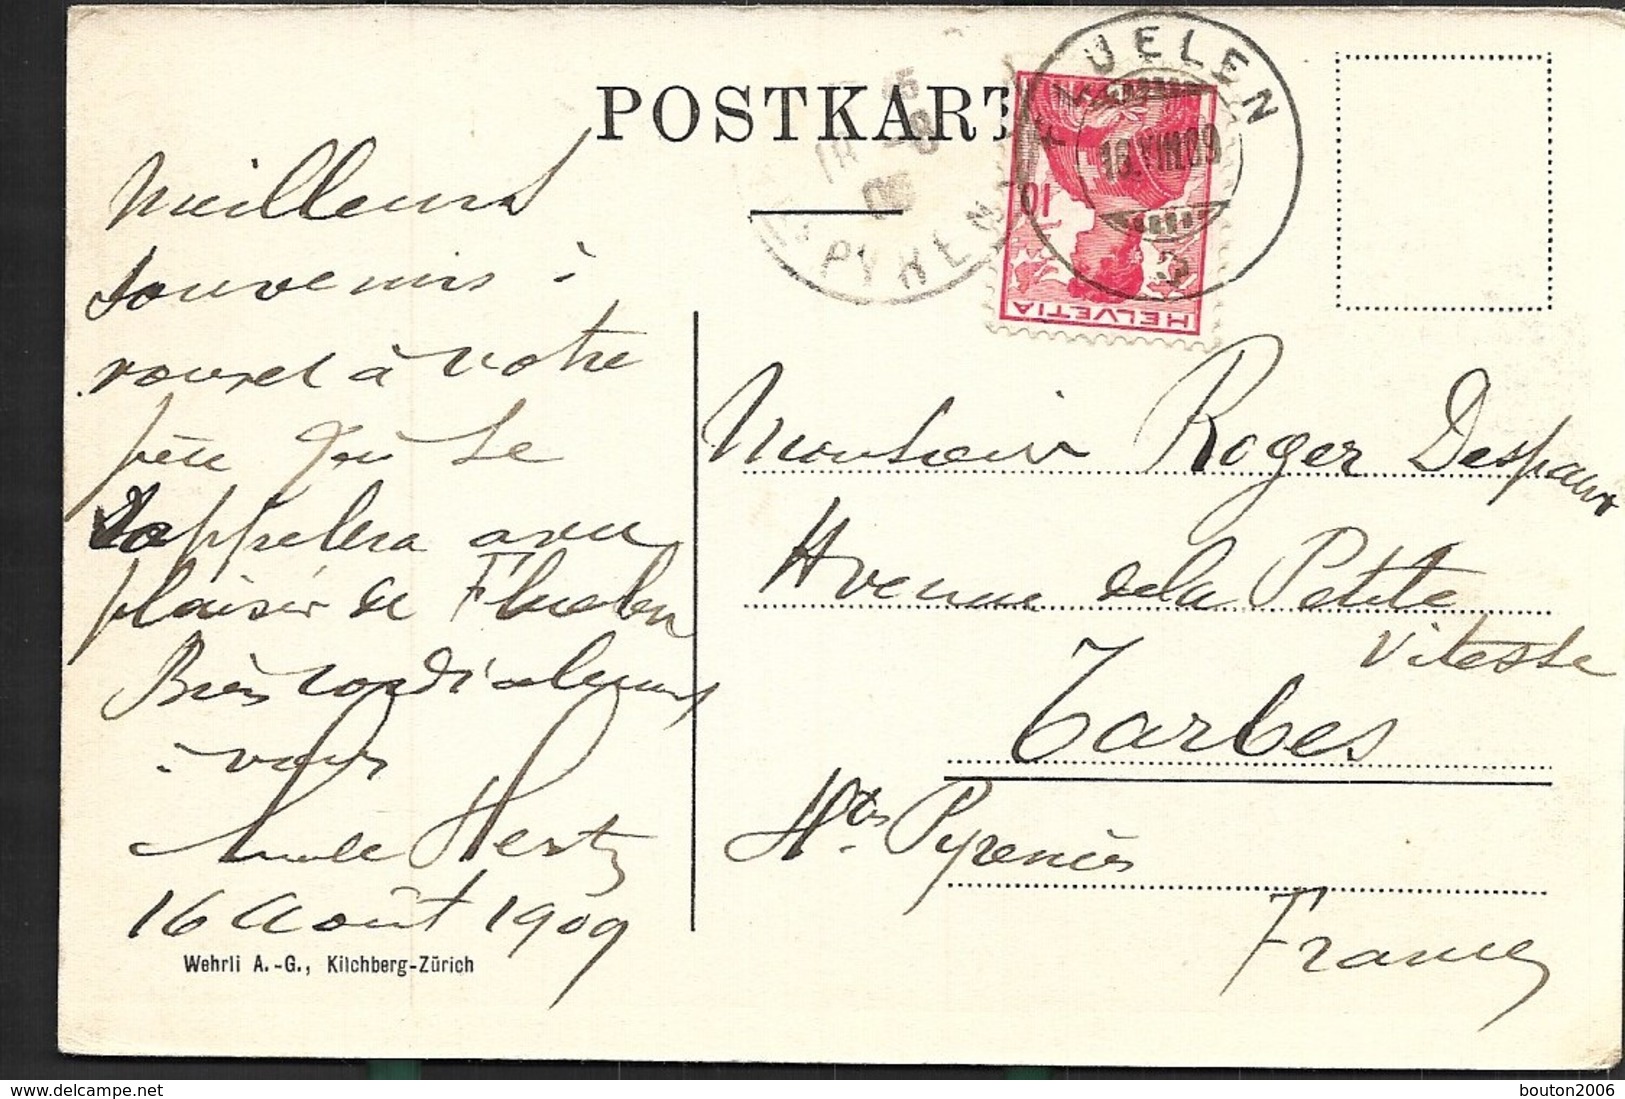 POSTKART
FLUELEN
16.VIII.09
10
HELVETIA
PYREN
Meilleurs
souvenirs à
vous et à votre
père qui se
rappelera avec
plaisir de Fluelen
Bien cordialement
à vous
Hertz
16 Août 1909
Wehrli A.-G., Kilchberg-Zürich
Monsieur Roger Despaux
Avenue de la Petite
Vitesse
Tarbes
Htes Pyrenées
France
delcampe.net
bouton2006